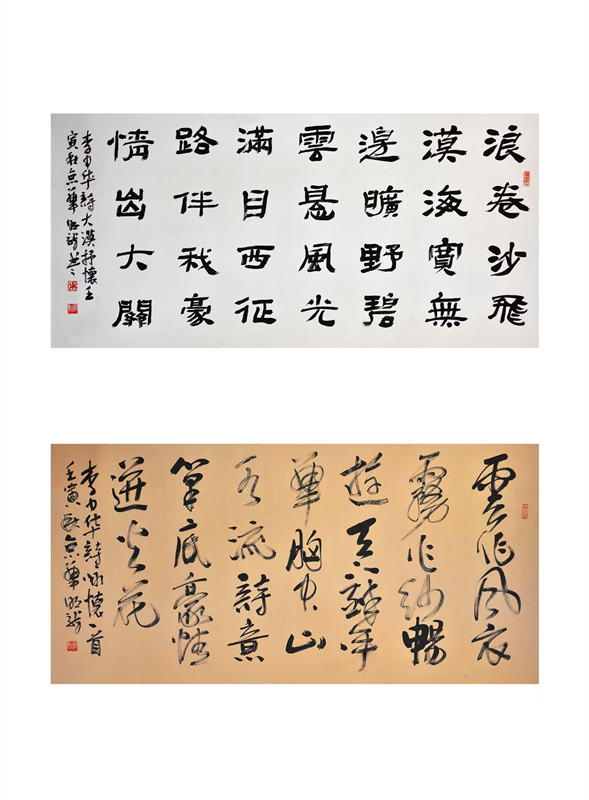 浪卷沙飛
漠海寬無
邊曠野碧
雲悬風光
滿目西征
路伴我豪
情出大關
李力华詩大漠抒懷壬
寅秋京華
雲作風衣
霧作紗暢
遊天下醉年
華胸中山
水流詩意
筆底豪情
迸火花
李力华詩咏懷一首
壬寅秋京華